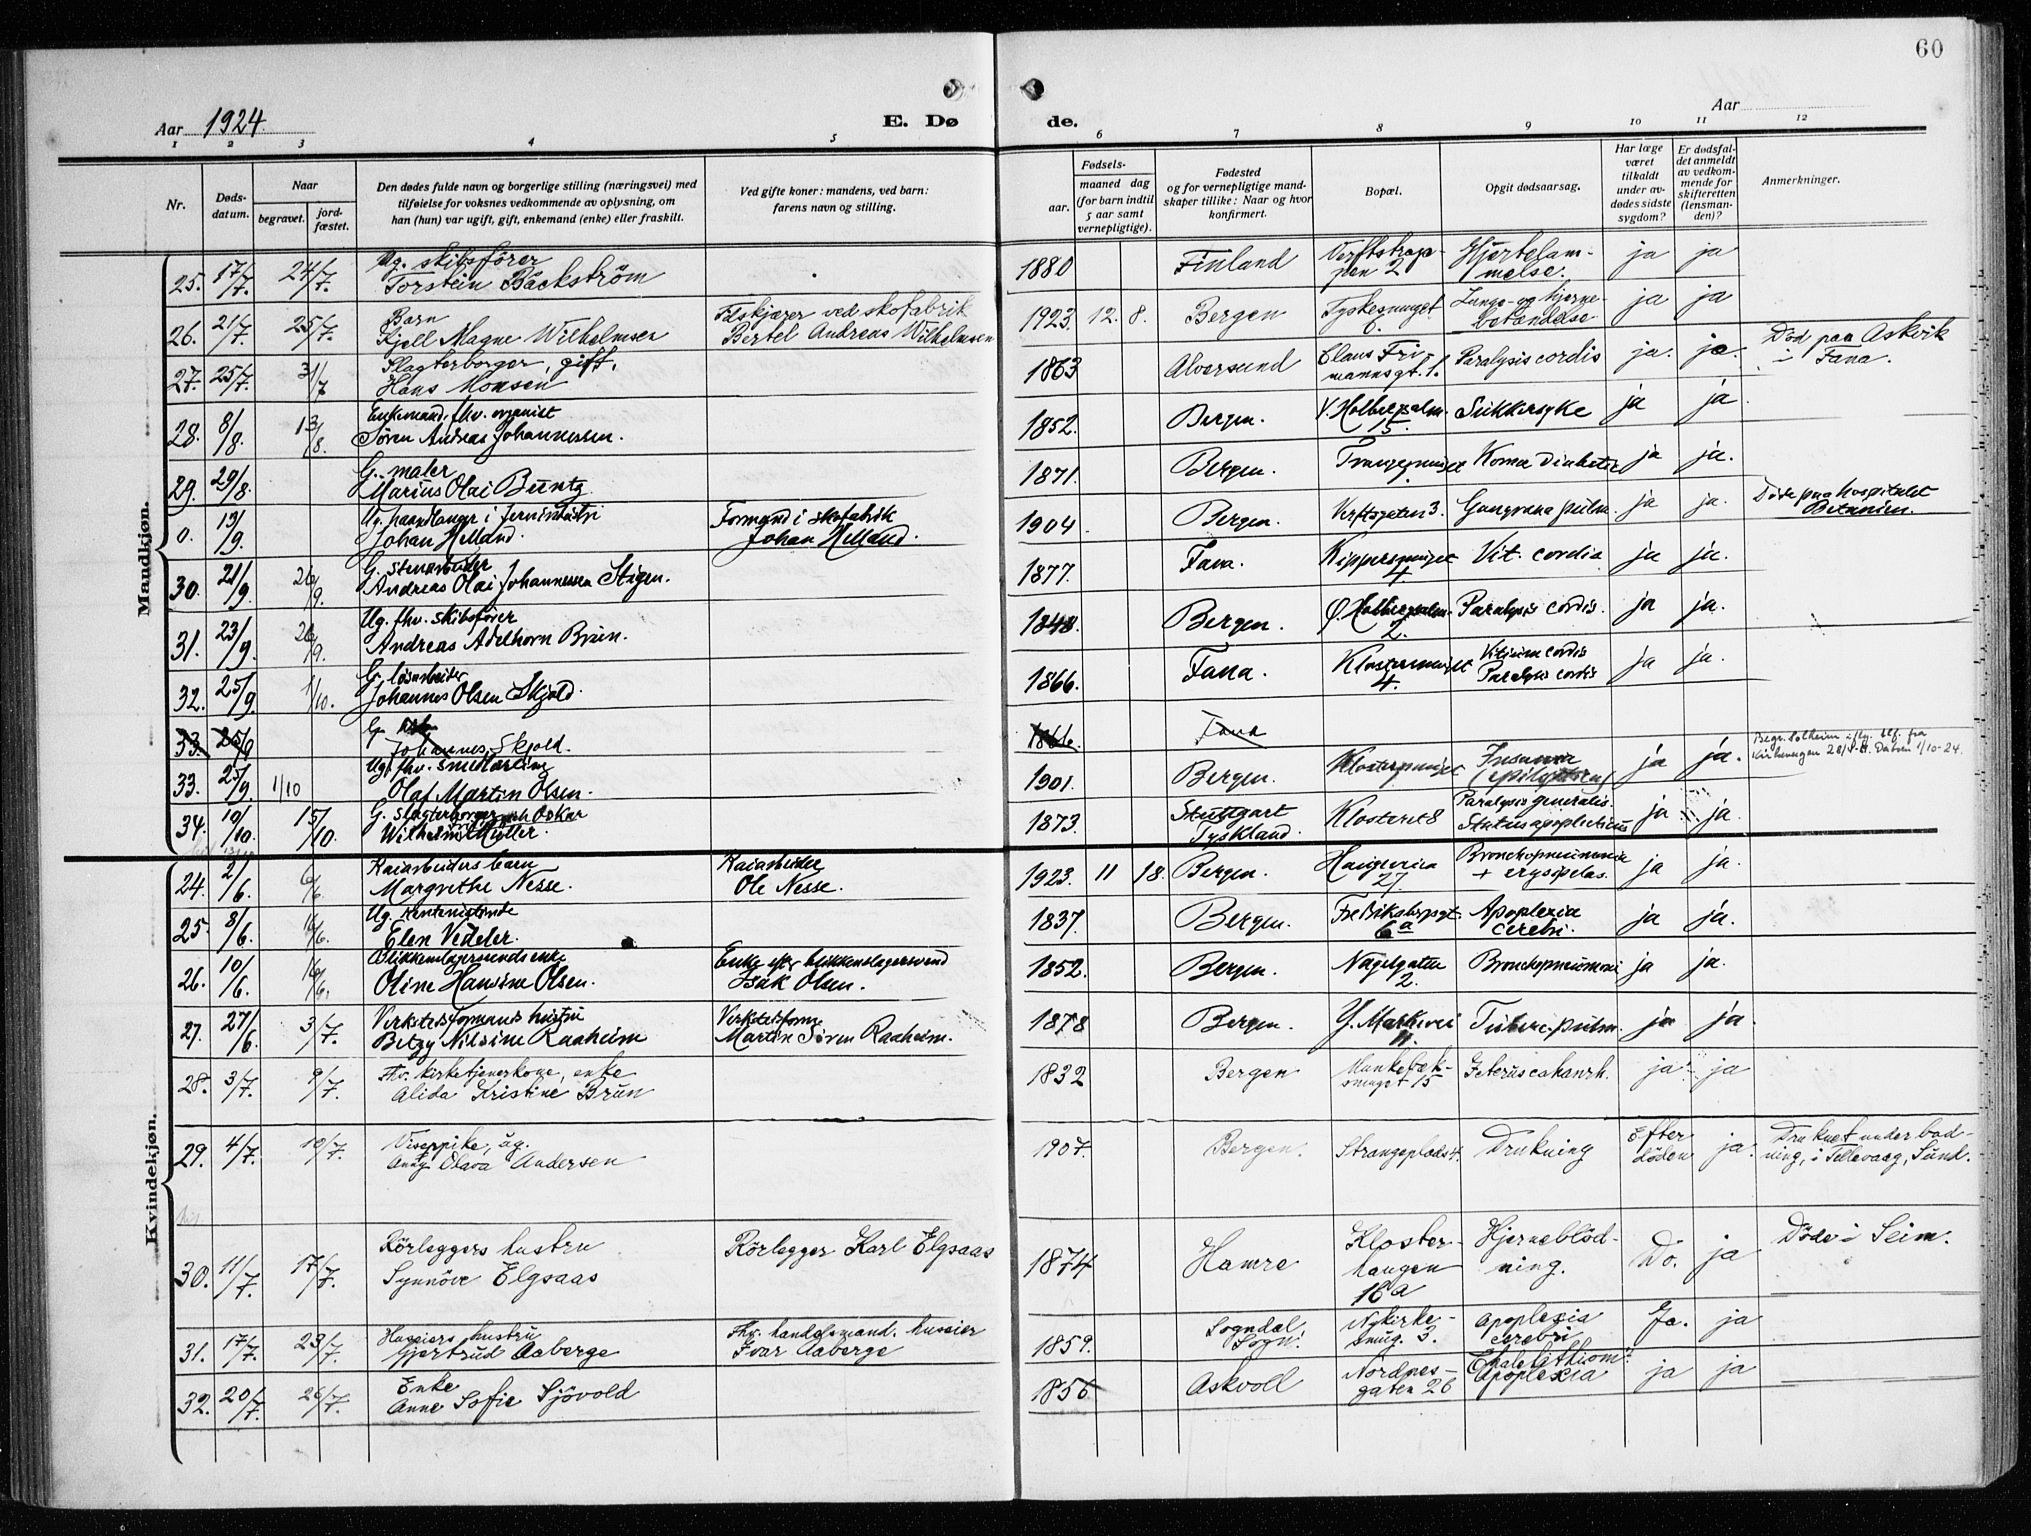 60
Aar 1924.
E. Dø
de.
Aar
1 2 3 4 5 6 7 8 9 10 11 12
Nr.
Døds-
datum.
Naar
begravet.
jord-
fæstet.
Den dødes fulde navn og borgerlige stilling (næringsvei) med
tilføielse for voksnes vedkommende av oplysning, om
han (hun) var ugift, gift, enkemand (enke) eller fraskilt.
Ved gifte koner: mandens, ved barn:
farens navn og stilling.
Fødsels-
aar.
maaned dag
(for barn indtil
5 aar samt
vernepligtige).
Fødested
og for vernepligtige mand-
skaper tillike: Naar og hvor
konfirmert.
Bopæl.
Opgit dødsaarsag.
Har læge
været
tilkaldt
under av-
dødes sidste
sygdom?
Er dødsfal-
det anmeldt
av vedkom-
mende for
skifteretten
(lensman-
den)?
Anmerkninger.
Mandkjøn.
25. 17/7. 24/7. Ug. skibsfører
Torstein Bäckström
1880 Finland Verftstrap-
pen 2 Hjertelam-
melse. ja ja
26. 21/7. 25/7. Barn
Kjell Magne Wilhelmsen
Tilskjærer ved skofabrik
Bertel Andreas Wilhelmsen
1923. 12. 8. Bergen Tyskesmuget
6 Lunge- og hjerne-
betændelse ja ja
27. 25/7. 31/7 Slagterborger, gift,
Hans Monsen
1863 Alversund Claus Fri-
mannsgt. 1. Paralysis cordis ja. ja. Död paa Askvik
i Fana.
28. 8/8. 13/8. Enkemand, fhv. organist
Søren Andreas Johannessen.
1852. Bergen. V. Holbergsalm.
15. Sukkersyke ja ja
29. 29/8. G. maler
Marius Olai Buntz
1871. Bergen. Trangesmuget Koma diabetic ja ja.
0. 13/9. Ug. haandlanger i jernindustri
Johan Helland.
Formand i skofabrik
Johan Helland.
1904 Bergen. Verftsgaten 3. Gangræna pulm. ja ja. Døde paa hospitalet
Betanien.
30. 21/9. 26/9. G. Stenarbeider
Andreas Olai Johannessen Stigen.
1877. Fana. Kippersmuget
4 Vit. cordia ja ja.
31. 23/9. 26/9. Ug. fhv. skibsfører
Andreas Adelhorn Brun.
1848. Bergen. Ø. Holbergsalm.
2. Paralysis cordis. ja ja.
32. 25/9. 1/10. G. løsarbeider
Johannes Olsen Skjold.
1866. Fana. Klostersmuget
4. Vitium cordis
Paralysis cordis ja ja.
33. 25/9 G.
Johannes Skjold.
1866. Fana
33. 25/9. 1/10 Ug. fhv. smedlærling
Olaf Martin Olsen.
1901. Bergen. Klostersmuget Insania
(epileptica) ja ja. Begr. Solheim iflg. tlf. fra
Kirkevergen
34. 10/10. 15/10. G. slagterborger
Wilhelm Oskar Müller.
1873. Stuttgart
Tyskland. Klosteret 8 Paralysis generalis.
Status apoplecticus ja ja.
Kvindekjøn.
24. 2/6. 6/6. Kaiarbeiders barn
Margrethe Nesse.
Kaiarbeider
Ole Nesse.
1923. 11 18. Bergen. Haugeveien
27. Bronchopneumonia
+ erysipelas. ja ja.
25. 8/6. 16/6. Ug. Rentenistinde
Elen Vedeler.
1837. Bergen. Fredriksbergsgt.
6a Apoplexia
cerebri. ja ja.
26. 10/6. 16/6. Blikkenslagersvends enke
Oline Hansine Olsen.
Enke efter blikkenslagersvend
Isak Olsen.
1852. Bergen. Nagelgaten
2. Bronchopneumoni ja ja.
27. 27/6. 3/7. Verkstedsformands hustru
Betzy Nilsine Raaheim
Verkstedsform.
Martin Søren Raaheim.
1878 Bergen. Y. Markevei
11. Tuberc. pulm. ja ja.
28. 3/7. 9/7. Fhv. kirketjenerkone, enke
Alida Kristine Brun
1832 Bergen Munkebæk-
smuget 15 ja. ja
29. 4/7. 10/7. Visergpike, ug.
Olava Andersen
1907. Bergen. Strangeplads 4. Drukning Efter
döden ja. Druknet under bad-
ning, i Tellevaag, Sund.
30. 11/7. 17/7. Rörleggers hustru
Synnöve Elgsaas
Rörlegger Karl Elgsaas
1874 Hamre Kloster-
haugen
18a Hjerneblöd-
ning. Do. ja Döde i Seim.
31. 17/7. 23/7. Husseiers hustru
Gjertrud Aaberge
Fhv. handelsmand. husseier
Ivar Aaberge
1859. Sogndal
Sogn. Nykirke-
smug. 3. Apoplexia
cerebri Ja. ja
32. 20/7. 26/7. Enke
Anne Sofie Sjövold
1856 Askvoll Nordnes-
gaten 26 Apoplexia ja ja